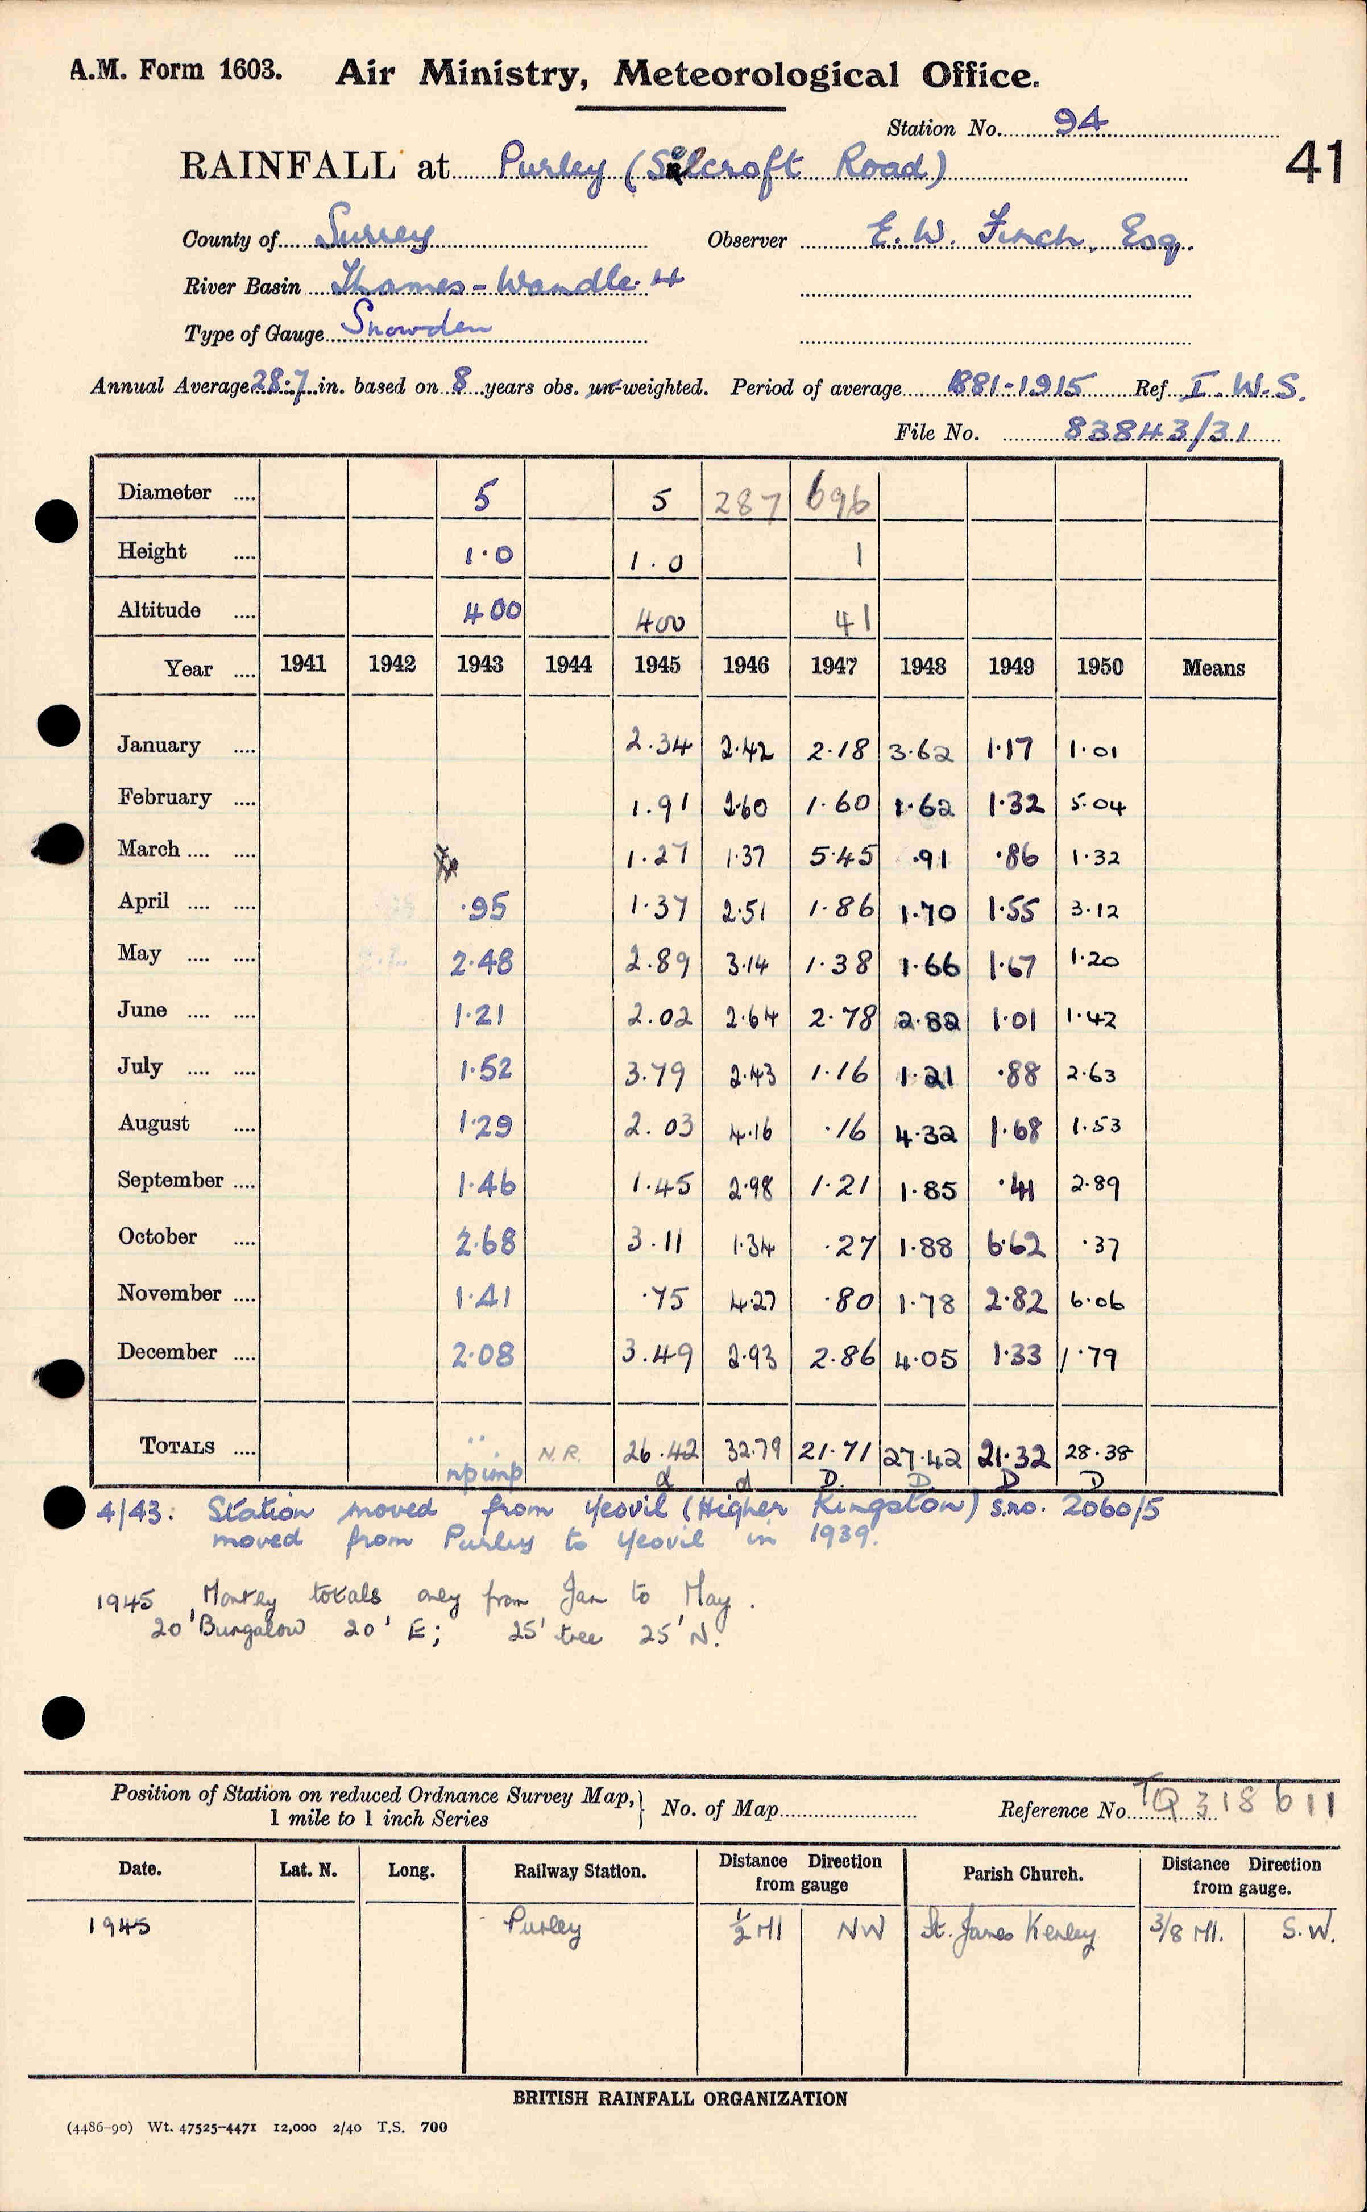 A.M. Form 1603. Air Ministry, Meteorological Office.
Station No. 94
41
RAINFALL at Purley (Selcroft Road)
County of Surrey Observer E. W. Finch, Esq.
River Basin Thames - Wandle. 4
Type of Gauge Snowden
Annual Average 28.7 in. based on 8 years obs. un-weighted. Period of average 1881-1915 Ref. I. W. S.
File No. 83843/31
Diameter .... 5 5 287 696
Height .... 1.0 1.0 1
Altitude .... 400 400 41
Year .... 1941 1942 1943 1944 1945 1946 1947 1948 1949 1950 Means
January .... 2.34 2.42 2.18 3.62 1.17 1.01
February .... 1.91 2.60 1.60 1.62 1.32 5.04
March .... .... 1.27 1.37 5.45 .91 .86 1.32
April .... .... .95 1.37 2.51 1.86 1.70 1.55 3.12
May .... .... 2.48 2.89 3.14 1.38 1.66 1.67 1.20
June .... .... 1.21 2.02 2.64 2.78 2.82 1.01 1.42
July .... .... 1.52 3.79 2.43 1.16 1.21 .88 2.63
August .... 1.29 2.03 4.16 .16 4.32 1.68 1.53
September .... 1.46 1.45 2.98 1.21 1.85 .41 2.89
October .... 2.68 3.11 1.34 .27 1.88 6.62 .37
November .... 1.41 .75 4.27 .80 1.78 2.82 6.06
December .... 2.08 3.49 2.93 2.86 4.05 1.33 1.79
TOTALS .... N.R. 26.42 32.79 21.71 27.42 21.32 28.38
np imp d d D. D D D
4/43. Station moved from Yeovil (Higher Kingston) s.no. 2060/5
moved from Purley to Yeovil in 1939.
1945 Montly totals only from Jan to May.
20' Bungalow 20' E; 25' tree 25' N.
Position of Station on reduced Ordnance Survey Map, 1 mile to 1 inch Series } No. of Map Reference No. TQ 318 611
Date. Lat. N. Long. Railway Station. Distance Direction from gauge Parish Church. Distance Direction from gauge.
1945 Purley 1/2 MI NW St. James Kenley 3/8 MI. S.W.
BRITISH RAINFALL ORGANIZATION
(4486-90) Wt. 47525-4471 12,000 2/40 T.S. 700